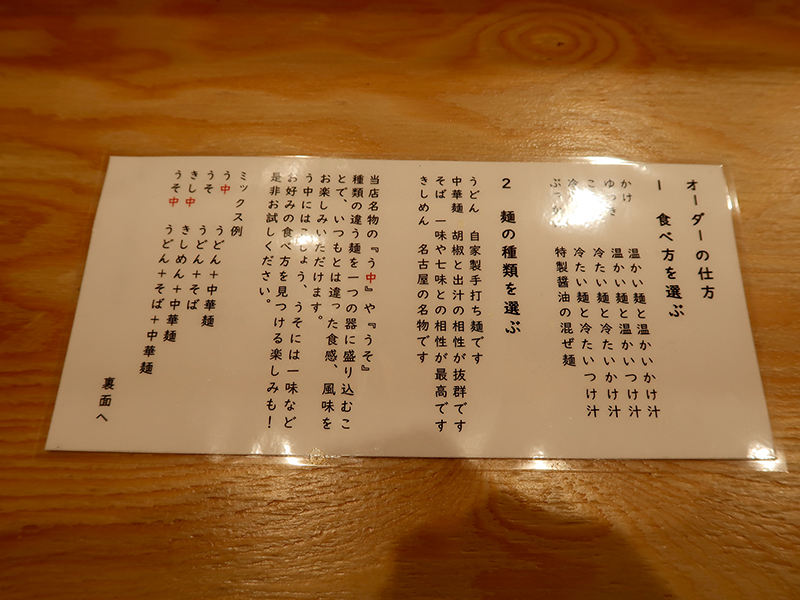 オーダーの仕方
1 食べ方を選ぶ
かけ 温かい麺と温かいかけ汁
ゆつき 温かい麺と温かいつけ汁
冷たい麺と冷たいかけ汁
冷たい麺と冷たいつけ汁
特製醤油の混ぜ麺
2 麺の種類を選ぶ
うどん 自家製手打ち麺です
中華麺 胡椒と出汁の相性が抜群です
そば 一味や七味との相性が最高です
きしめん 名古屋の名物です
当店名物の『う中』や『うそ』
種類の違う麺を一つの器に盛り込むこ
とで、いつもとは違った食感、風味を
お楽しみいただけます。
う中にはこしょう、うそには一味など
お好みの食べ方を見つける楽しみも！
是非お試しください。
ミックス例
う中 うどん＋中華麺
うそ うどん＋そば
きし中 きしめん＋中華麺
うそ中 うどん＋そば＋中華麺
裏面へ